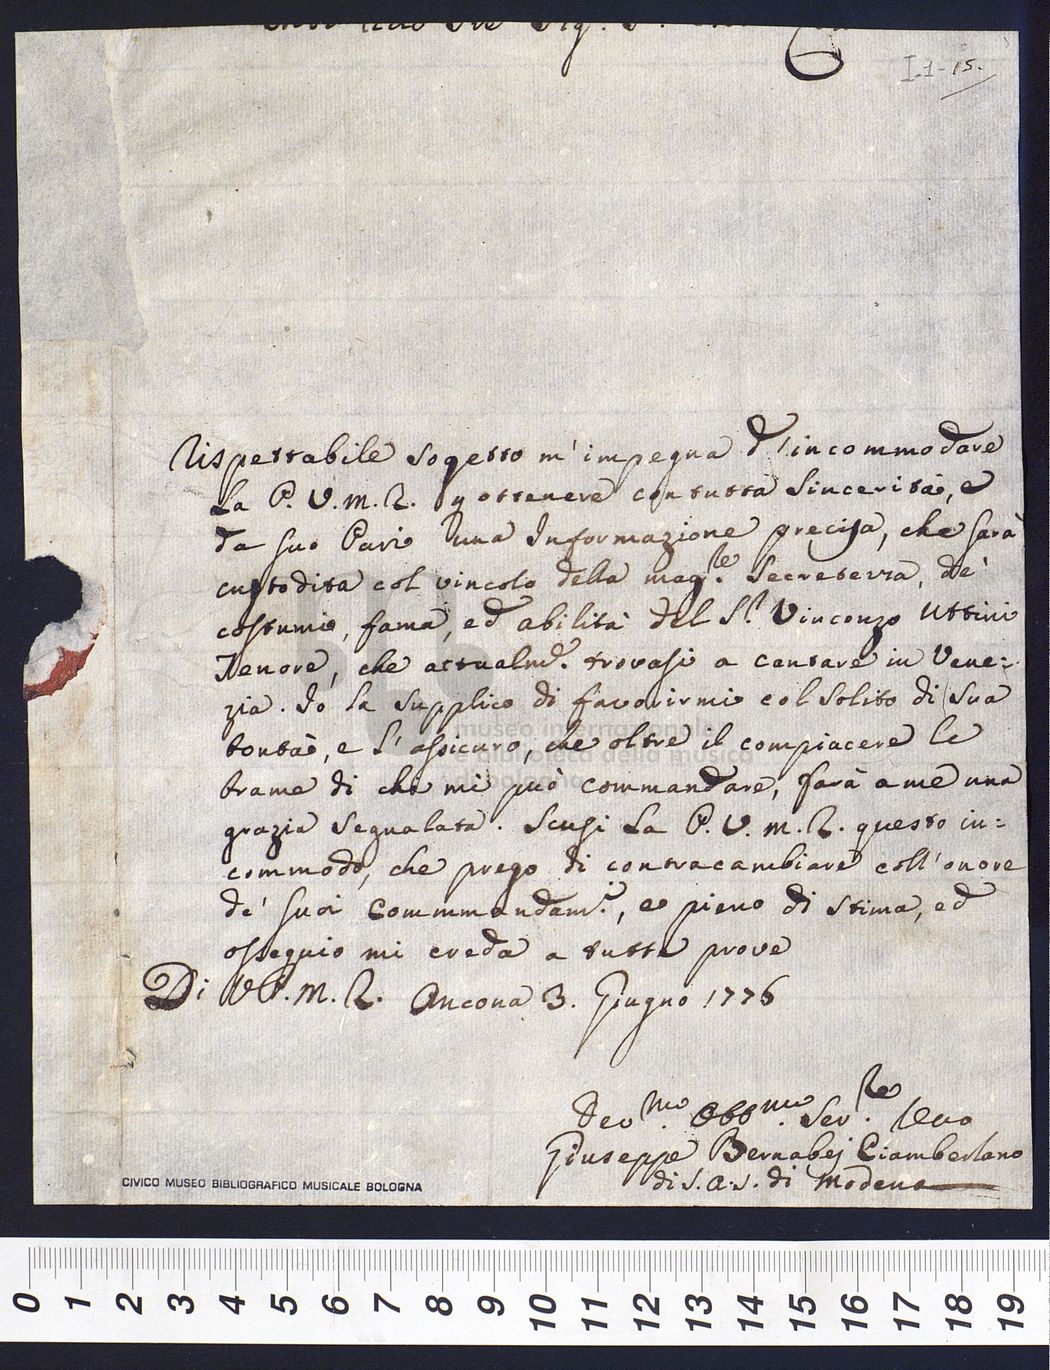 I.1-15.
Rispettabile sogetto m'impegna d'incommodare
La P. V. M. R. p ottenere con tutta sincerità, e
da suo Pari una Informazione precisa, che sarà
custodita col vincolo della magle. Secretezza, de'
costumi, fama, ed abilità del Sr. Vincenzo Uttini
Tenore, che attualmte. trovasi a cantare in Vene=
zia. Io la supplico di favorirmi col solito di sua
bontà, e l'assicuro, che oltre il compiacere le
brame di chi mi può commandare, farà a me una
grazia segnalata. Scusi La P. V. M. R. questo in=
commodo, che prego di contracambiare coll'onore
de' suoi Commmandamti., e pieno di stima, ed
ossequio mi creda a tutte prove
Di V. P. M. R. Ancona 3. Giugno 1776
Devmo. Obbmo. Serre. Vero
Giuseppe Bernabej Ciamberlano
di S. A. S. di Modena
museo internazionale
e biblioteca della musica
di bologna
CIVICO MUSEO BIBLIOGRAFICO MUSICALE BOLOGNA
0 1 2 3 4 5 6 7 8 9 10 11 12 13 14 15 16 17 18 19